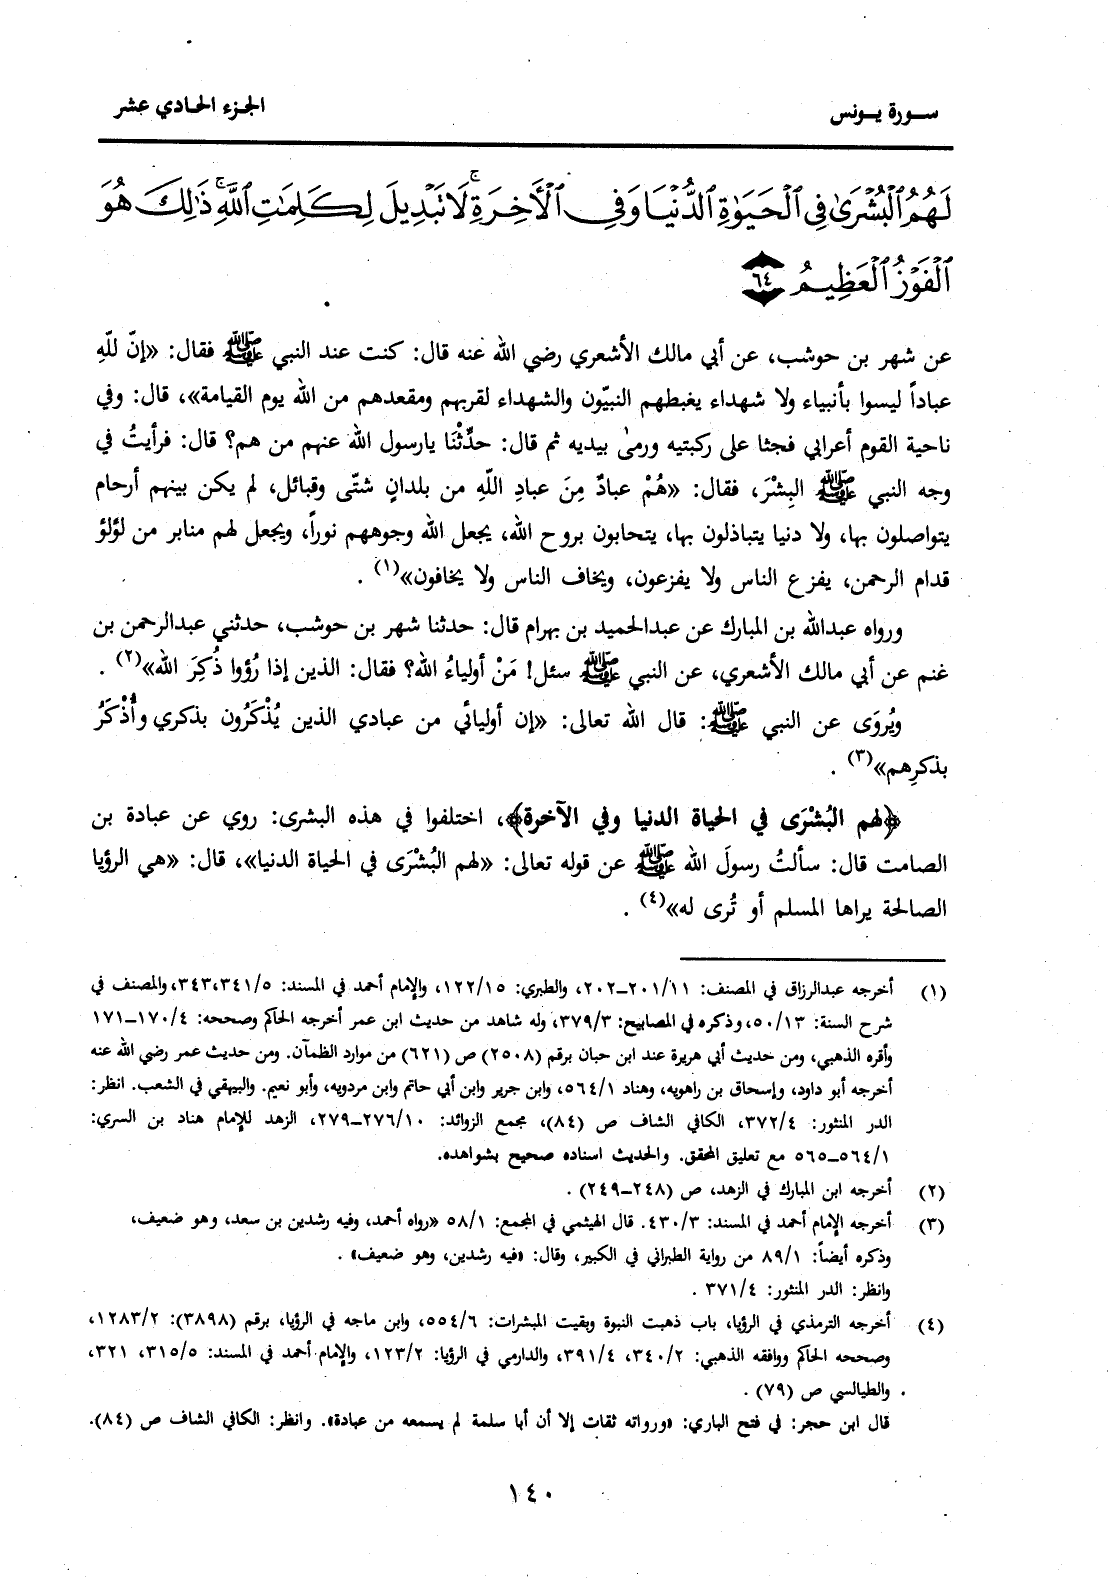 سورة يونس
الجزء الحادي عشر
لَهُمُ ٱلْبُشْرَىٰ فِي ٱلْحَيَوٰةِ ٱلدُّنْيَا وَفِي ٱلْأَخِرَةِۚ لَا تَبْدِيلَ لِكَلِمَٰتِ ٱللَّهِۚ ذَٰلِكَ هُوَ
ٱلْفَوْزُ ٱلْعَظِيمُ ٦٤
عن شهر بن حوشب، عن أبي مالك الأشعري رضي الله عنه قال: كنت عند النبي ﷺ فقال: «إنّ للّهِ
عباداً ليسوا بأنبياء ولا شهداء يغبطهم النبيّون والشهداء لقربهم ومقعدهم من الله يوم القيامة»، قال: وفي
ناحية القوم أعرابي فجثا على ركبتيه ورمىٰ بيديه ثم قال: حدِّثْنَا يارسول الله عنهم من هم؟ قال: فرأيتُ في
وجه النبي ﷺ البِشْرَ، فقال: «هُمْ عبادٌ مِنَ عبادِ اللّهِ من بلدانٍ شتّى وقبائل، لم يكن بينهم أرحام
يتواصلون بها، ولا دنيا يتباذلون بها، يتحابون بروح الله، يجعل الله وجوههم نوراً، ويجعل لهم منابر من لؤلؤ
قدام الرحمن، يفزع الناس ولا يفزعون، ويخاف الناس ولا يخافون»(١) .
ورواه عبدالله بن المبارك عن عبدالحميد بن بهرام قال: حدثنا شهر بن حوشب، حدثني عبدالرحمن بن
غنم عن أبي مالك الأشعري، عن النبي ﷺ سئل! مَنْ أولياءُ الله؟ فقال: الذين إذا رُؤوا ذُكِرَ الله»(٢) .
ويُروَى عن النبي ﷺ: قال الله تعالى: «إن أوليائي من عبادي الذين يُذْكَرُون بذكري وأُذْكَرُ
بذكرِهم»(٣) .
﴿لهم البُشْرَى في الحياة الدنيا وفي الآخرة﴾، اختلفوا في هذه البشرى: روي عن عبادة بن
الصامت قال: سألتُ رسولَ الله ﷺ عن قوله تعالى: «لهم البُشْرَى في الحياة الدنيا»، قال: «هي الرؤيا
الصالحة يراها المسلم أو تُرى له»(٤) .
(١) أخرجه عبدالرزاق في المصنف: ٢٠١/١١–٢٠٢، والطبري: ١٢٢/١٥، والإمام أحمد في المسند: ٣٤١/٥،٣٤٣، والمصنف في
شرح السنة: ٥٠/١٣، وذكره في المصابيح: ٣٧٩/٣، وله شاهد من حديث ابن عمر أخرجه الحاكم وصححه: ١٧٠/٤–١٧١
وأقره الذهبي، ومن حديث أبي هريرة عند ابن حبان برقم (٢٥٠٨) ص (٦٢١) من موارد الظمآن. ومن حديث عمر رضي الله عنه
أخرجه أبو داود، وإسحاق بن راهويه، وهناد ٥٦٤/١، وابن جرير وابن أبي حاتم وابن مردويه، وأبو نعيم. والبيهقي في الشعب. انظر:
الدر المنثور: ٣٧٢/٤، الكافي الشاف ص (٨٤)، مجمع الزوائد: ٢٧٦/١٠–٢٧٩، الزهد للإمام هناد بن السري:
٥٦٤/١–٥٦٥ مع تعليق المحقق. والحديث اسناده صحيح بشواهده.
(٢) أخرجه ابن المبارك في الزهد، ص (٢٤٨–٢٤٩) .
(٣) أخرجه الإمام أحمد في المسند: ٤٣٠/٣. قال الهيثمي في المجمع: ٥٨/١ «رواه أحمد، وفيه رشدين بن سعد، وهو ضعيف،
وذكره أيضاً: ٨٩/١ من رواية الطبراني في الكبير، وقال: «فيه رشدين، وهو ضعيف» .
وانظر: الدر المنثور: ٣٧١/٤ .
(٤) أخرجه الترمذي في الرؤيا، باب ذهبت النبوة وبقيت المبشرات: ٥٥٤/٦، وابن ماجه في الرؤيا، برقم (٣٨٩٨): ١٢٨٣/٢،
وصححه الحاكم ووافقه الذهبي: ٣٤٠/٢، ٣٩١/٤، والدارمي في الرؤيا: ١٢٣/٢، والإمام أحمد في المسند: ٣١٥/٥، ٣٢١،
والطيالسي ص (٧٩) .
قال ابن حجر: في فتح الباري: «ورواته ثقات إلا أن أبا سلمة لم يسمعه من عبادة». وانظر: الكافي الشاف ص (٨٤).
١٤٠